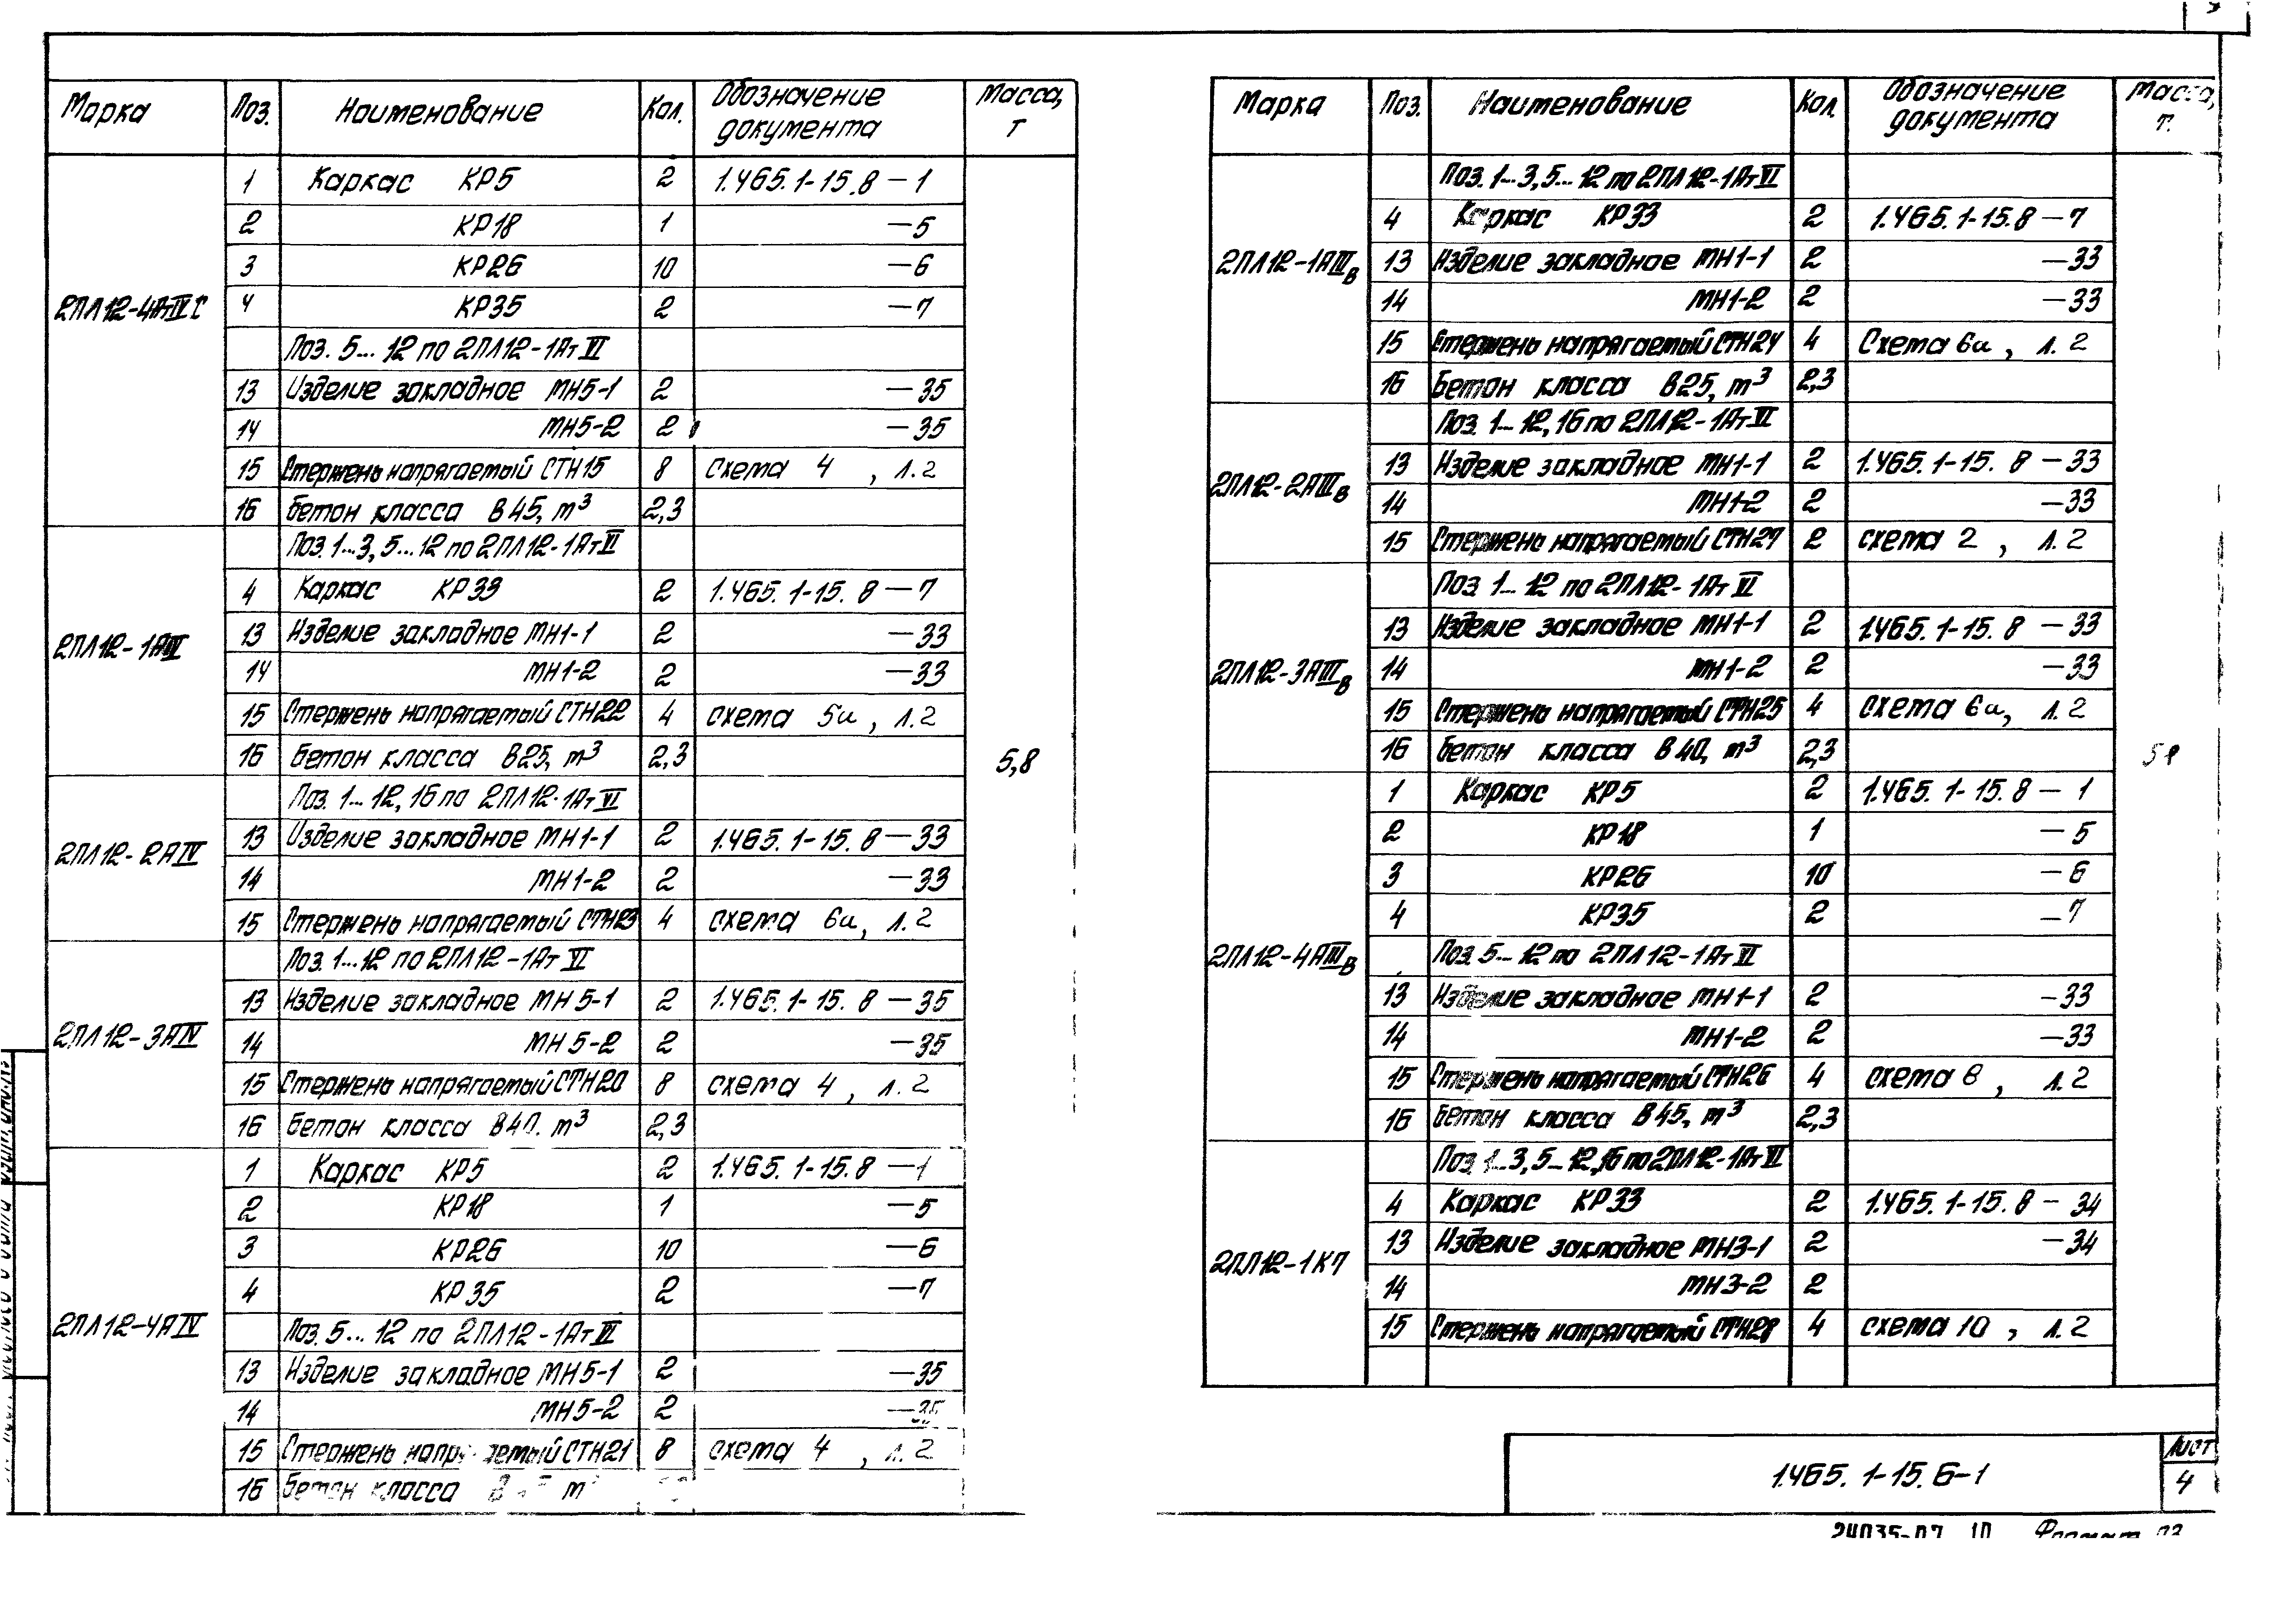 Марка Поз. Наименование Кол. Обозначение документа Масса, т
2ПЛ12-4АтIVС
1 Каркас КР5 2 1.465.1-15.8 – 1
2 КР18 1 – 5
3 КР26 10 – 6
4 КР35 2 – 7
Поз. 5... 12 по 2ПЛ12-1АтVI
13 Изделие закладное МН5-1 2 – 35
14 МН5-2 2 – 35
15 Стержень напрягаемый СТН15 8 схема 4 , л.2
16 Бетон класса В45, m³ 2,3
2ПЛ12-1АIV
Поз. 1...3, 5...12 по 2ПЛ12-1АтVI
4 Каркас КР33 2 1.465.1-15.8 – 7
13 Изделие закладное МН1-1 2 – 33
14 МН1-2 2 – 33
15 Стержень напрягаемый СТН22 4 схема 5и, л.2
16 Бетон класса В25, m³ 2,3
5,8
2ПЛ12-2АIV
Поз. 1... 12, 16 по 2ПЛ12-1АтVI
13 Изделие закладное МН1-1 2 1.465.1-15.8 – 33
14 МН1-2 2 – 33
15 Стержень напрягаемый СТН23 4 схема 6и, л.2
2ПЛ12-3АIV
Поз. 1...12 по 2ПЛ12-1АтVI
13 Изделие закладное МН5-1 2 1.465.1-15.8 – 35
14 МН5-2 2 – 35
15 Стержень напрягаемый СТН20 8 схема 4 , л.2
16 Бетон класса В40. m³ 2,3
2ПЛ12-4АIV
1 Каркас КР5 2 1.465.1-15.8 – 1
2 КР18 1 – 5
3 КР26 10 – 6
4 КР35 2 – 7
Поз. 5... 12 по 2ПЛ12-1АтVI
13 Изделие закладное МН5-1 2 – 35
14 МН5-2 2 – 35
15 Стержень СТН21 8 схема 4 , л.2
16 Бетон класса
Марка Поз. Наименование Кол. Обозначение документа Масса, т.
2ПЛ12-1АIIIв
Поз. 1...3, 5... 12 по 2ПЛ12-1АтVI
4 Каркас КР33 2 1.465.1-15.8 – 7
13 Изделие закладное МН1-1 2 – 33
14 МН1-2 2 – 33
15 Стержень напрягаемый СТН24 4 Схема 6и , л. 2
16 Бетон класса В25, m³ 2,3
2ПЛ12-2АIIIв
Поз. 1... 12, 16 по 2ПЛ12-1АтVI
13 Изделие закладное МН1-1 2 1.465.1-15.8 – 33
14 МН1-2 2 – 33
15 Стержень напрягаемый СТН27 2 схема 2 , л.2
2ПЛ12-3АIIIв
Поз. 1... 12 по 2ПЛ12-1АтVI
13 Изделие закладное МН1-1 2 1.465.1-15.8 – 33
14 МН1-2 2 – 33
15 Стержень напрягаемый СТН25 4 схема 6и, л.2
16 Бетон класса В40, m³ 2,3
2ПЛ12-4АIIIв
1 Каркас КР5 2 1.465.1-15.8 – 1
2 КР18 1 – 5
3 КР26 10 – 6
4 КР35 2 – 7
Поз. 5... 12 по 2ПЛ12-1АтVI
13 Изделие закладное МН1-1 2 -33
14 МН1-2 2 –33
15 Стержень напрягаемый СТН26 4 схема 8 , л.2
16 Бетон класса В45, m³ 2,3
2ПЛ12-1К7
Поз. 1...3, 5...12, 16 по 2ПЛ12-1АтVI
4 Каркас КР33 2 1.465.1-15.8 – 34
13 Изделие закладное МН3-1 2 – 34
14 МН3-2 2
15 Стержень напрягаемый СТН28 4 схема 10 , л.2
1.465.1-15.6-1
Лист
4
24035-07 10